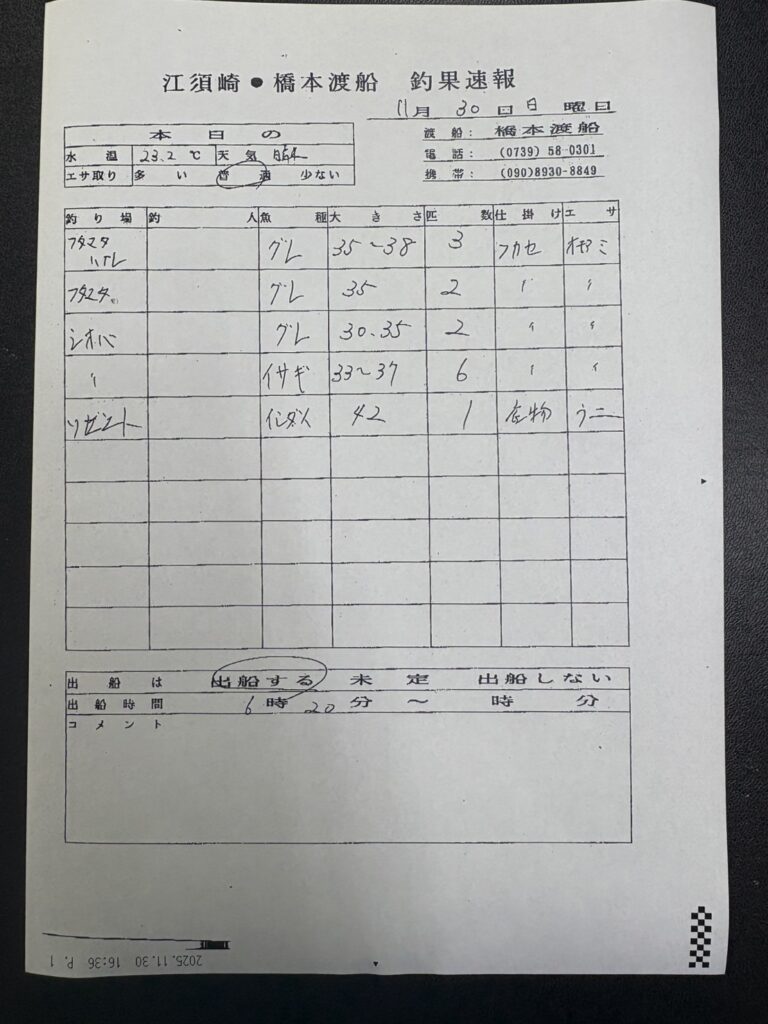 江須崎●橋本渡船 釣果速報
11月 30日 日 曜日
本日の
水温 23.2 ℃ 天気 晴れ
エサ取り 多い 普通 少ない
渡船: 橋本渡船
電話: (0739) 58-0301
携帯: (090)8930-8849
釣り場 釣人 魚種 大きさ 匹数 仕掛け エサ
フタマタハナレ グレ 35～38 3 フカセ オキアミ
フタマタ グレ 35 2 〃 〃
シオハ グレ 30.35 2 〃 〃
〃 イサギ 33～37 6 〃 〃
ソゼント イシダイ 42 1 底物 ウニ
出船は 出船する 未定 出船しない
出船時間 6時 20分 ～ 時 分
コメント
2025.11.30 16:36 P. 1